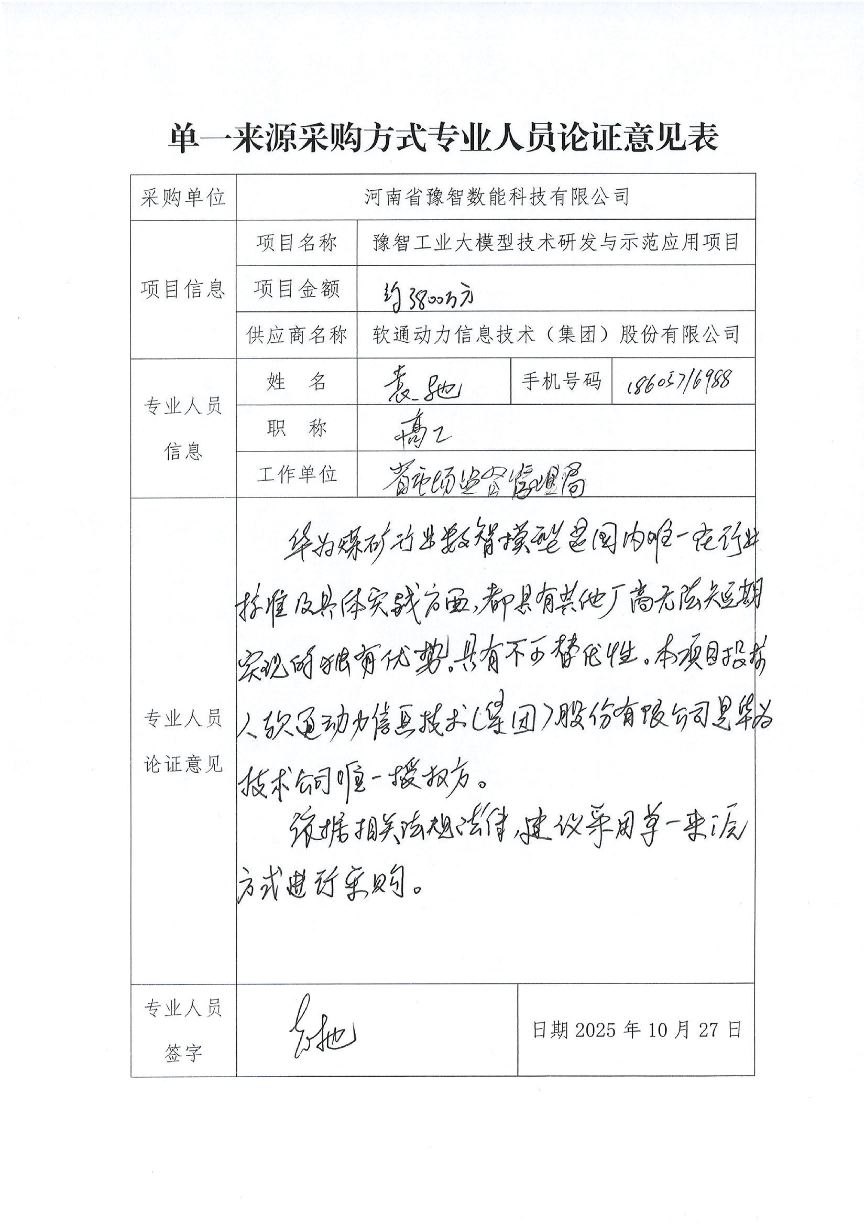 单一来源采购方式专业人员论证意见表
采购单位 河南省豫智数能科技有限公司
项目信息
项目名称 豫智工业大模型技术研发与示范应用项目
项目金额 约3800万元
供应商名称 软通动力信息技术（集团）股份有限公司
专业人员
信息
姓 名 袁驰 手机号码
职 称 高工
工作单位 省市场监督管理局
专业人员
论证意见
华为煤矿行业数智模型是国内唯一在行业
标准及具体实践方面，都具有其他厂商无法短期
实现的独有优势。具有不可替代性。本项目投标
人软通动力信息技术（集团）股份有限公司是华为
技术公司唯一授权方。
依据相关法规法律，建议采用单一来源
方式进行采购。
专业人员
签字
袁驰
日期 2025 年 10 月 27 日